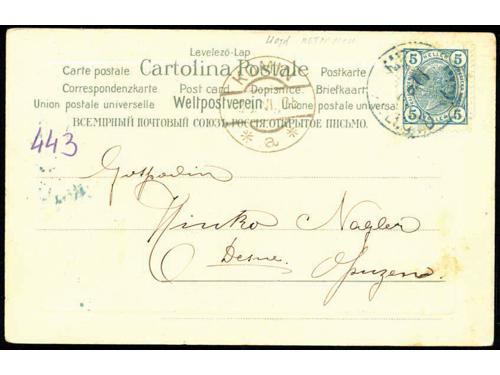 Levelező-Lap
Carte postale Cartolina Postale Postkarte
Correspondenzkarte Post card Dopisnice Briefkaart
Union postale universelle Weltpostverein Unione postale universale
ВСЕМІРНЫЙ ПОЧТОВЫЙ СОЮЗЪ РОССІЯ. ОТКРЫТОЕ ПИСЬМО.
5 5
5 5
a
443
Gospodin
Hinko Nagler
Desne. Opuzeno.